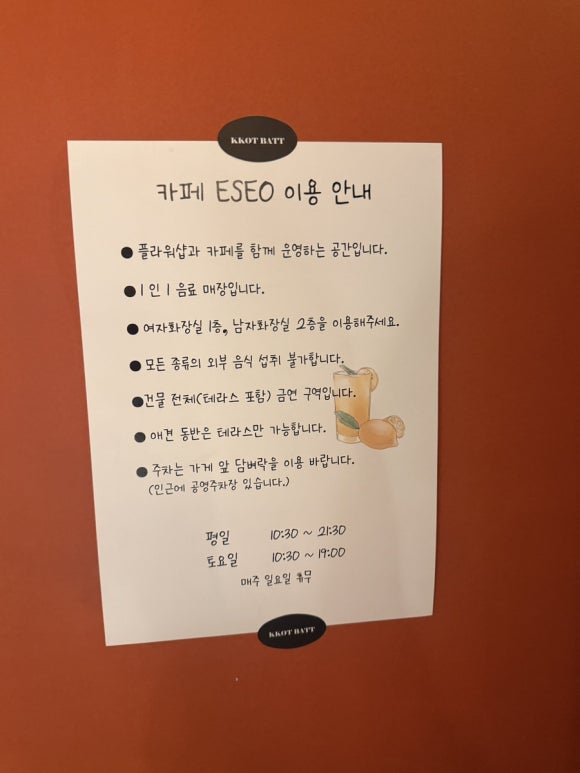 KKOT BATT
카페 ESEO 이용 안내
● 플라워샵과 카페를 함께 운영하는 공간입니다.
● 1인 1음료 매장입니다.
● 여자화장실 1층, 남자화장실 2층을 이용해주세요.
● 모든 종류의 외부 음식 섭취 불가합니다.
● 건물 전체(테라스 포함) 금연 구역입니다.
● 애견 동반은 테라스만 가능합니다.
● 주차는 가게 앞 담벼락을 이용 바랍니다.
(인근에 공영주차장 있습니다.)
평일 10:30 ~ 21:30
토요일 10:30 ~ 19:00
매주 일요일 휴무
KKOT BATT